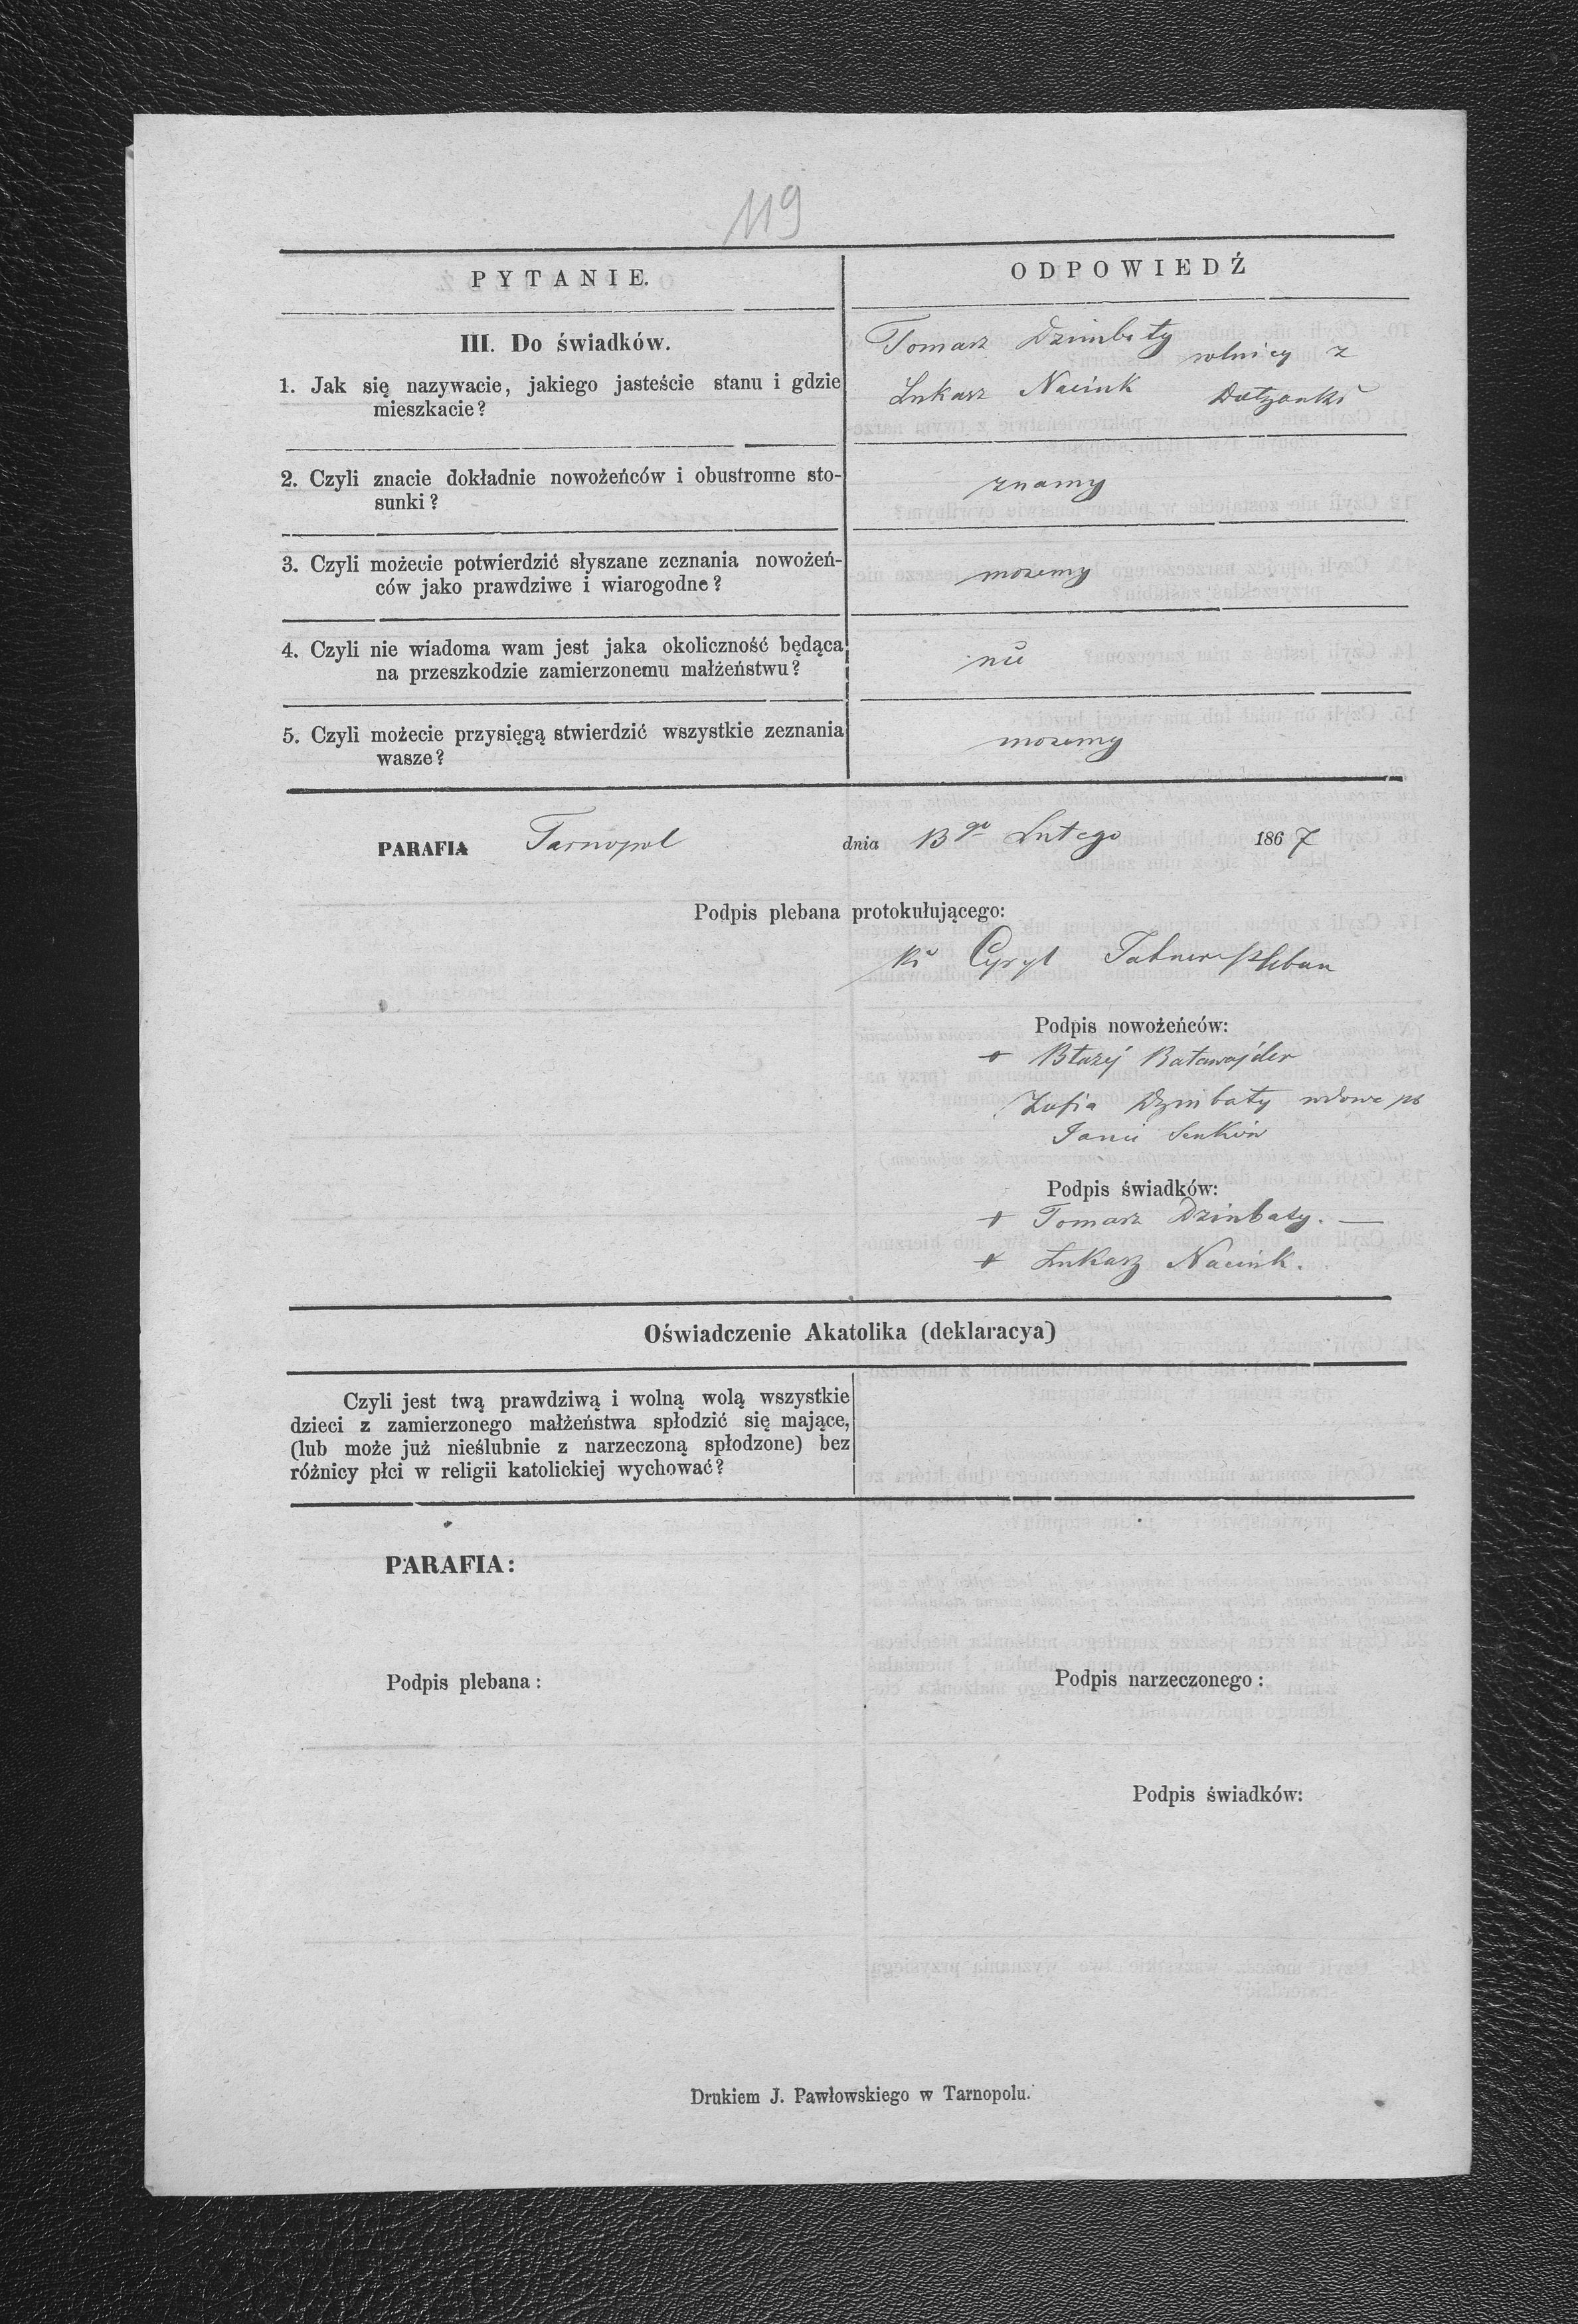 119
PYTANIE.
ODPOWIEDŹ
III. Do świadków.
1. Jak się nazywacie, jakiego jasteście stanu i gdzie
mieszkacie?
Tomasz Dzimbaty
rolnicy z
Łukasz Naciuk
2. Czyli znacie dokładnie nowożeńców i obustronne sto-
sunki?
znamy
3. Czyli możecie potwierdzić słyszane zeznania nowożeń-
ców jako prawdziwe i wiarogodne?
mozemy
4. Czyli nie wiadoma wam jest jaka okoliczność będąca
na przeszkodzie zamierzonemu małżeństwu?
nie
5. Czyli możecie przysięgą stwierdzić wszystkie zeznania
wasze?
mozemy
PARAFIA Tarnopol dnia 13go Lutego 1867
Podpis plebana protokułującego:
Cyryl pleban
Podpis nowożeńców:
+ Błażej Batawajder
Zofia Dzimbaty wdowa po
Janie Senków
Podpis świadków:
+ Tomasz Dzimbaty. —
+ Łukasz Naciuk.
Oświadczenie Akatolika (deklaracya)
Czyli jest twą prawdziwą i wolną wolą wszystkie
dzieci z zamierzonego małżeństwa spłodzić się mające,
(lub może już nieślubnie z narzeczoną spłodzone) bez
różnicy płci w religii katolickiej wychować?
PARAFIA:
Podpis plebana:
Podpis narzeczonego:
Podpis świadków:
Drukiem J. Pawłowskiego w Tarnopolu.